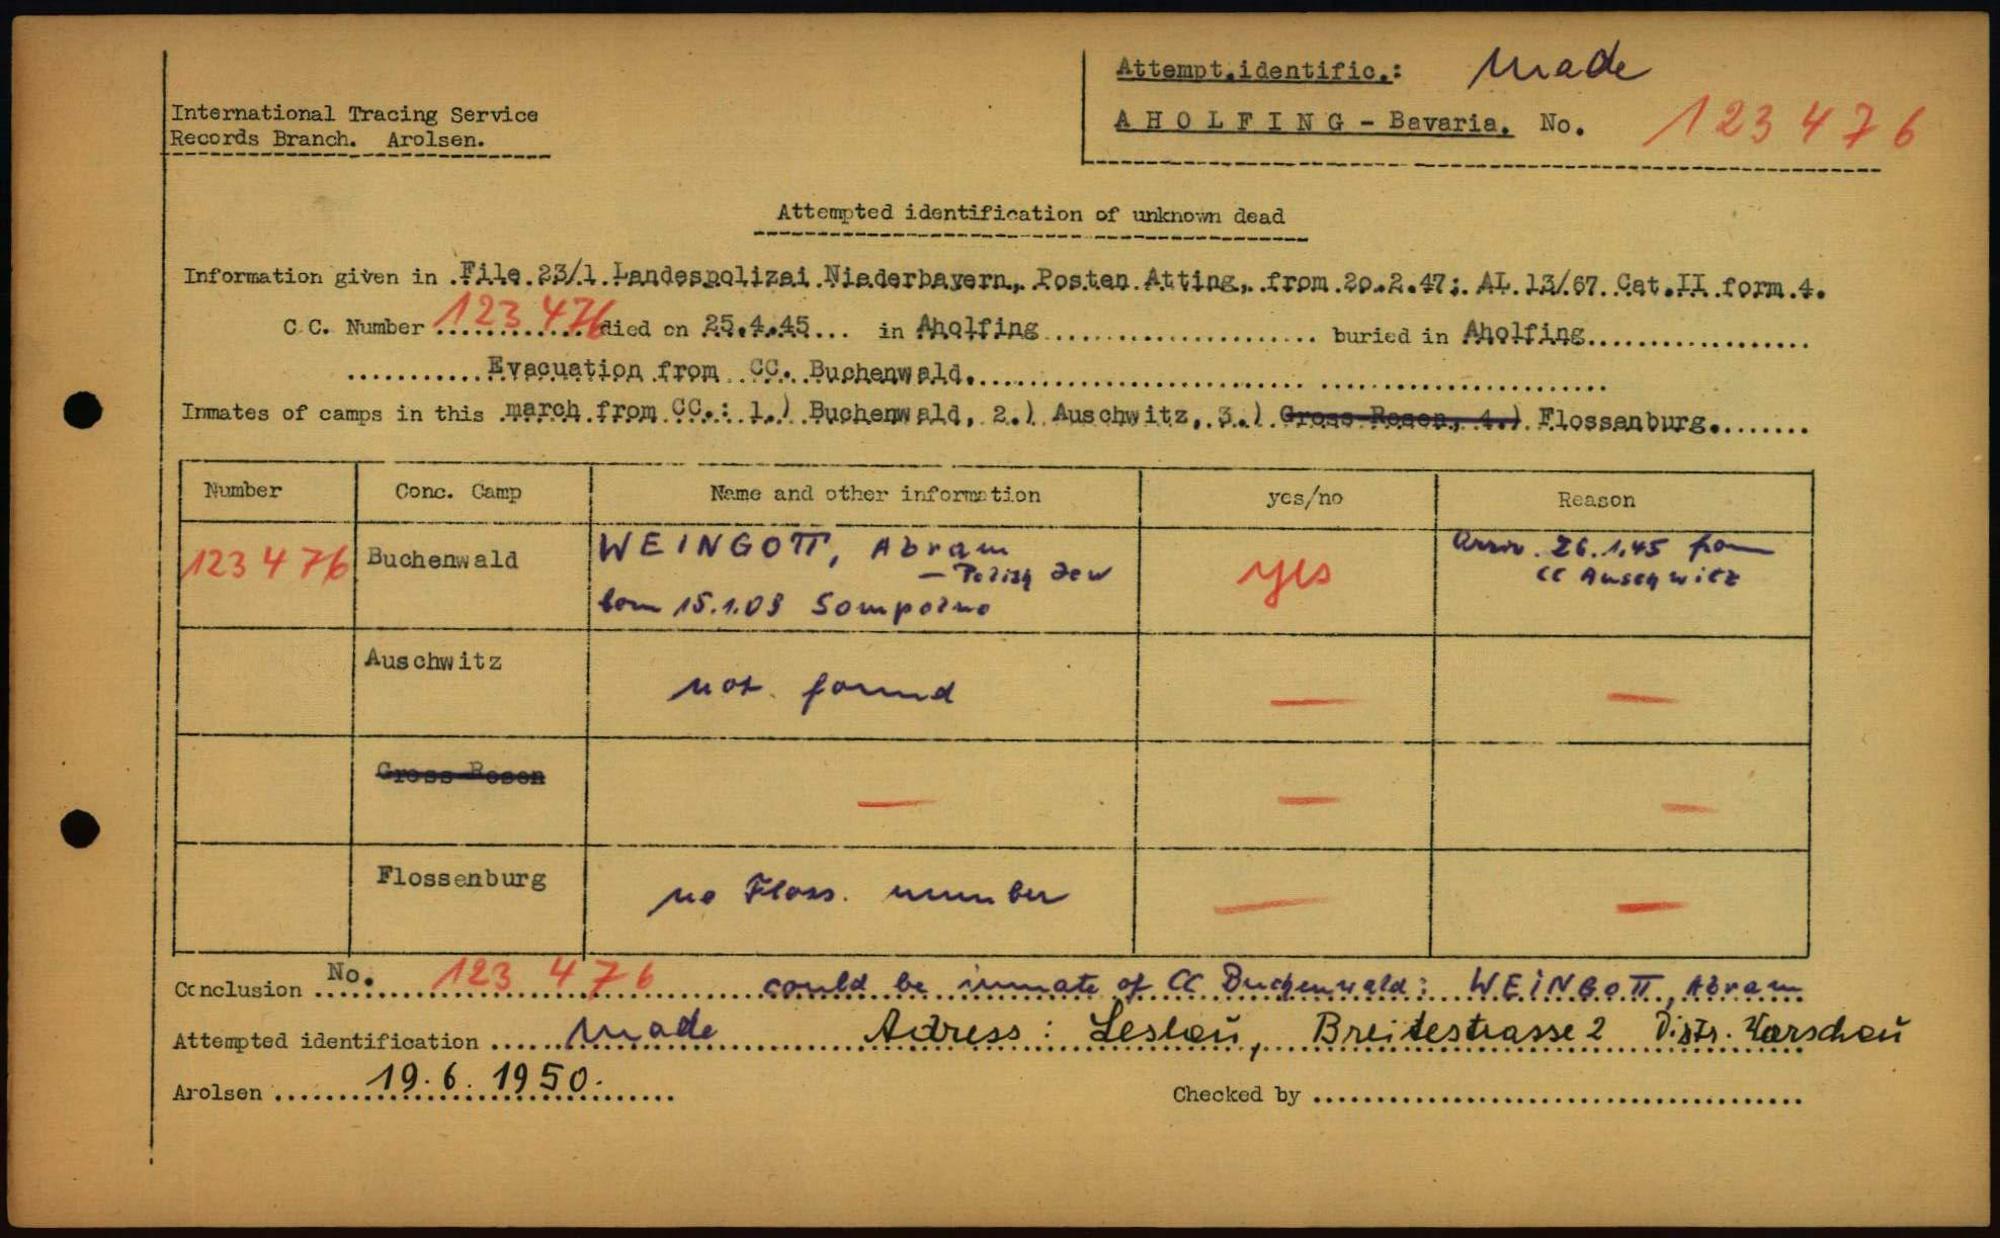 Attempt.identific.: Made
International Tracing Service
Records Branch. Arolsen.
AHOLFING - Bavaria. No. 123476
Attempted identification of unknown dead
Information given in File 23/1 Landespolizei Niederbayern, Posten Atting, from 20.2.47; AL 13/67 Cat.II form 4.
C.C. Number 123476 died on 25.4.45 in Aholfing buried in Aholfing
Evacuation from CC. Buchenwald.
Inmates of camps in this march from CC.: 1.) Buchenwald, 2.) Auschwitz, 3.) Gross Rosen, 4.) Flossenburg.
Number Conc. Camp Name and other information yes/no Reason
123476 Buchenwald WEINGOTT, Abram yes Arriv. 26.1.45 from
— Polish Jew CC Auschwitz
born 15.1.09 Sompolno
Auschwitz not found — —
Gross Rosen — — —
Flossenburg no Floss. number — —
Conclusion No. 123476 could be inmate of CC Buchenwald: WEINGOTT, Abram
Attempted identification Made Adress: Leslau, Breitestrasse 2 Distr. Warschau
Arolsen 19.6.1950. Checked by